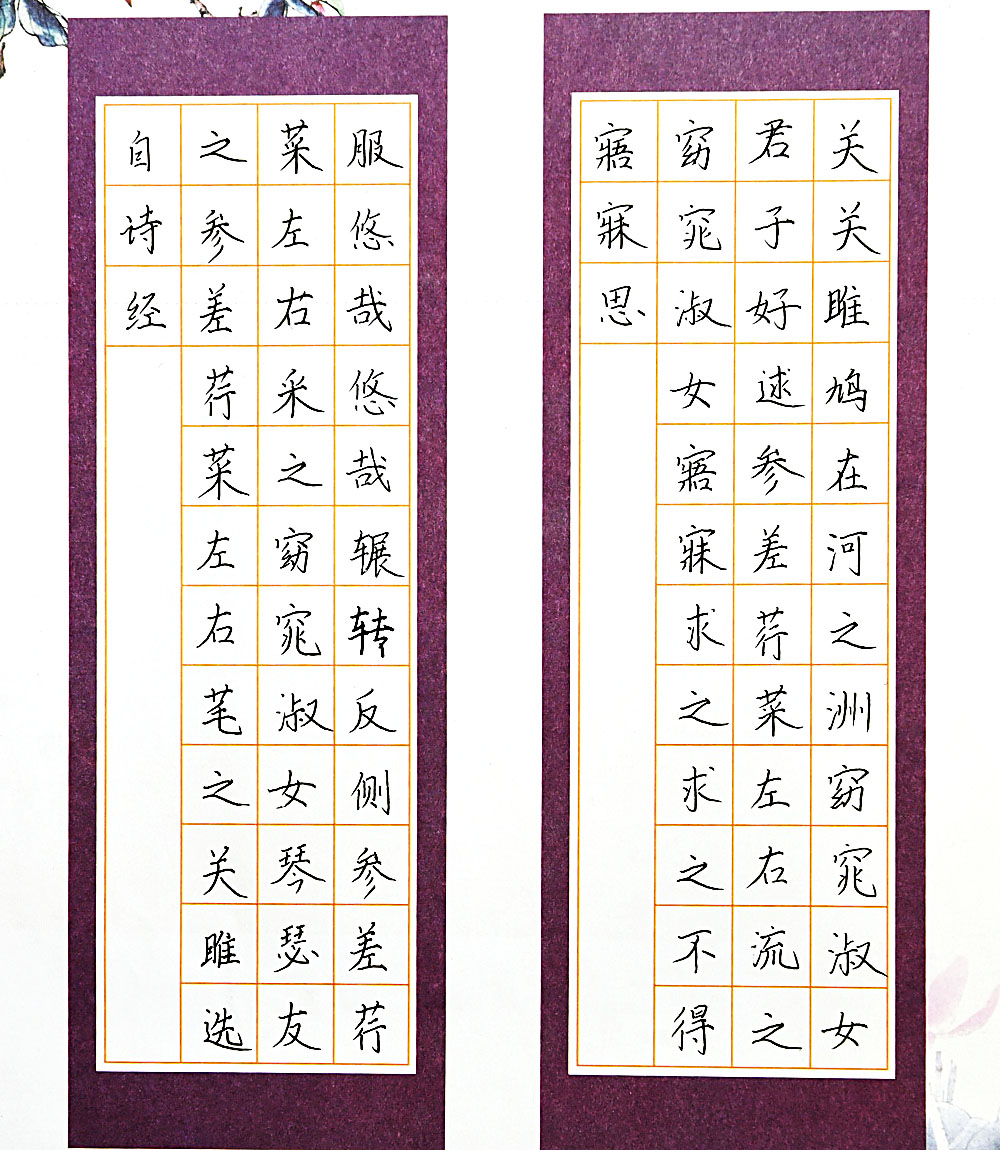 关关雎鸠在河之洲窈窕淑女
君子好逑参差荇菜左右流之
窈窕淑女寤寐求之求之不得
寤寐思
服悠哉悠哉辗转反侧参差荇
菜左右采之窈窕淑女琴瑟友
之参差荇菜左右芼之关雎选
自诗经